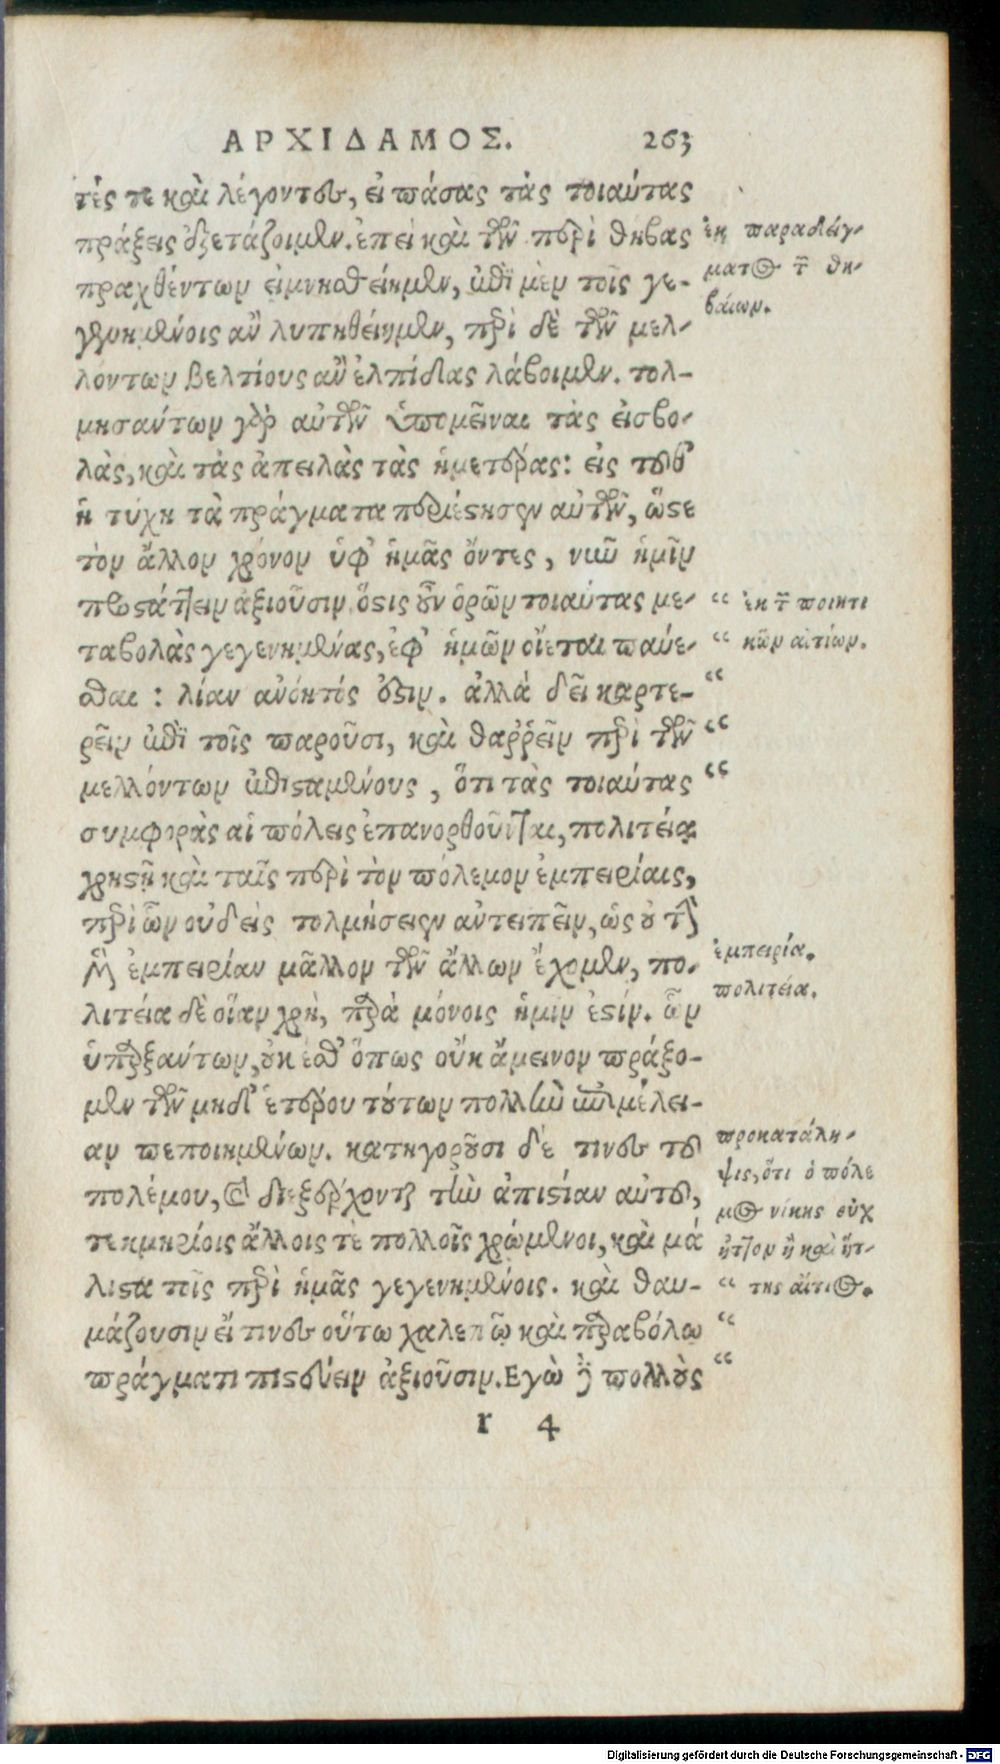 ΑΡΧΙΔΑΜΟΣ. 263
τές τε καὶ λέγοντες, εἰ πάσας τὰς τοιαύτας
πράξεις ἐξετάζοιμεν. ἐπεὶ καὶ τῶν περὶ θήβας
πραχθέντων εἰ μνησθείημεν, ἐπὶ μὲν τοῖς γε-
γενημένοις ἂν λυπηθείημεν, περὶ δὲ τῶν μελ-
λόντων βελτίους ἂν ἐλπίδας λάβοιμεν. τολ-
μησάντων γὰρ αὐτῶν ὑπομεῖναι τὰς εἰσβο-
λὰς, καὶ τὰς ἀπειλὰς τὰς ἡμετέρας: εἰς τοῦθ'
ἡ τύχη τὰ πράγματα περιέστησεν αὐτῶν, ὥστε
τὸν ἄλλον χρόνον ὑφ' ἡμᾶς ὄντες, νῦν ἡμῖν
προστάττειν ἀξιοῦσιν. ὅστις οὖν ὁρῶν τοιαύτας με-
ταβολὰς γεγενημένας, ἐφ' ἡμῶν οἴεται παύε-
σθαι: λίαν ἀνόητός ἐστιν. ἀλλὰ δεῖ καρτε-
ρεῖν ἐπὶ τοῖς παροῦσι, καὶ θαῤῥεῖν περὶ τῶν
μελλόντων ἐπισταμένους, ὅτι τὰς τοιαύτας
συμφορὰς αἱ πόλεις ἐπανορθοῦνται, πολιτείᾳ
χρηστῇ καὶ ταῖς περὶ τὸν πόλεμον ἐμπειρίαις,
περὶ ὧν οὐδεὶς τολμήσειεν ἀντειπεῖν, ὡς οὐ τὴν
μὲν ἐμπειρίαν μᾶλλον τῶν ἄλλων ἔχομεν, πο-
λιτεία δὲ οἵαν χρὴ, παρὰ μόνοις ἡμῖν ἐστίν. ὧν
ὑπαρξάντων, οὐκ ἔσθ' ὅπως οὐκ ἄμεινον πράξο-
μεν τῶν μηδ' ἑτέρου τούτων πολλὴν ἐπιμέλει-
αν πεποιημένων. κατηγοροῦσι δέ τινες τοῦ
πολέμου, καὶ διεξέρχονται τὴν ἀπιστίαν αὐτοῦ,
τεκμηρίοις ἄλλοις τὲ πολλοῖς χρώμενοι, καὶ μά
λιστα τοῖς περὶ ἡμᾶς γεγενημένοις. καὶ θαυ-
μάζουσιν εἴ τινες οὕτω χαλεπῷ καὶ παραβόλῳ
πράγματι πιστεύειν ἀξιοῦσιν. Εγὼ δὲ πολλοὺς
r 4
ἐκ παραδείγ-
ματος τῶν θη-
βαίων.
“ ἐκ τῶν ποιητι
“ κῶν αἰτίων.
“
“
“
ἐμπειρία.
πολιτεία.
προκατάλη-
ψις, ὅτι ὁ πόλε
μος νίκης οὐχ
ἧττον ἢ καὶ ἥτ-
“ της αἴτιος.
“
“
Digitalisierung gefördert durch die Deutsche Forschungsgemeinschaft - DFG